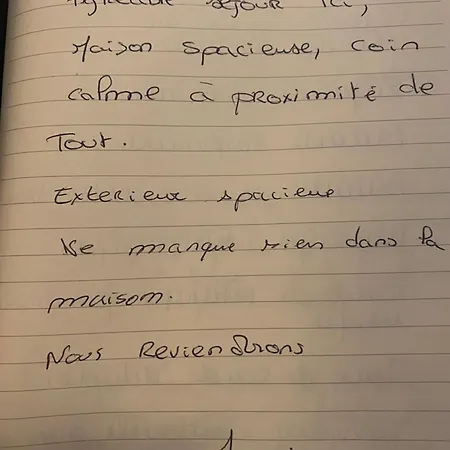 Agréable séjour ici,
Maison spacieuse, coin
calme à proximité de
Tout.
Exterieur spacieux
Ne manque rien dans la
maison.
Nous Reviendrons